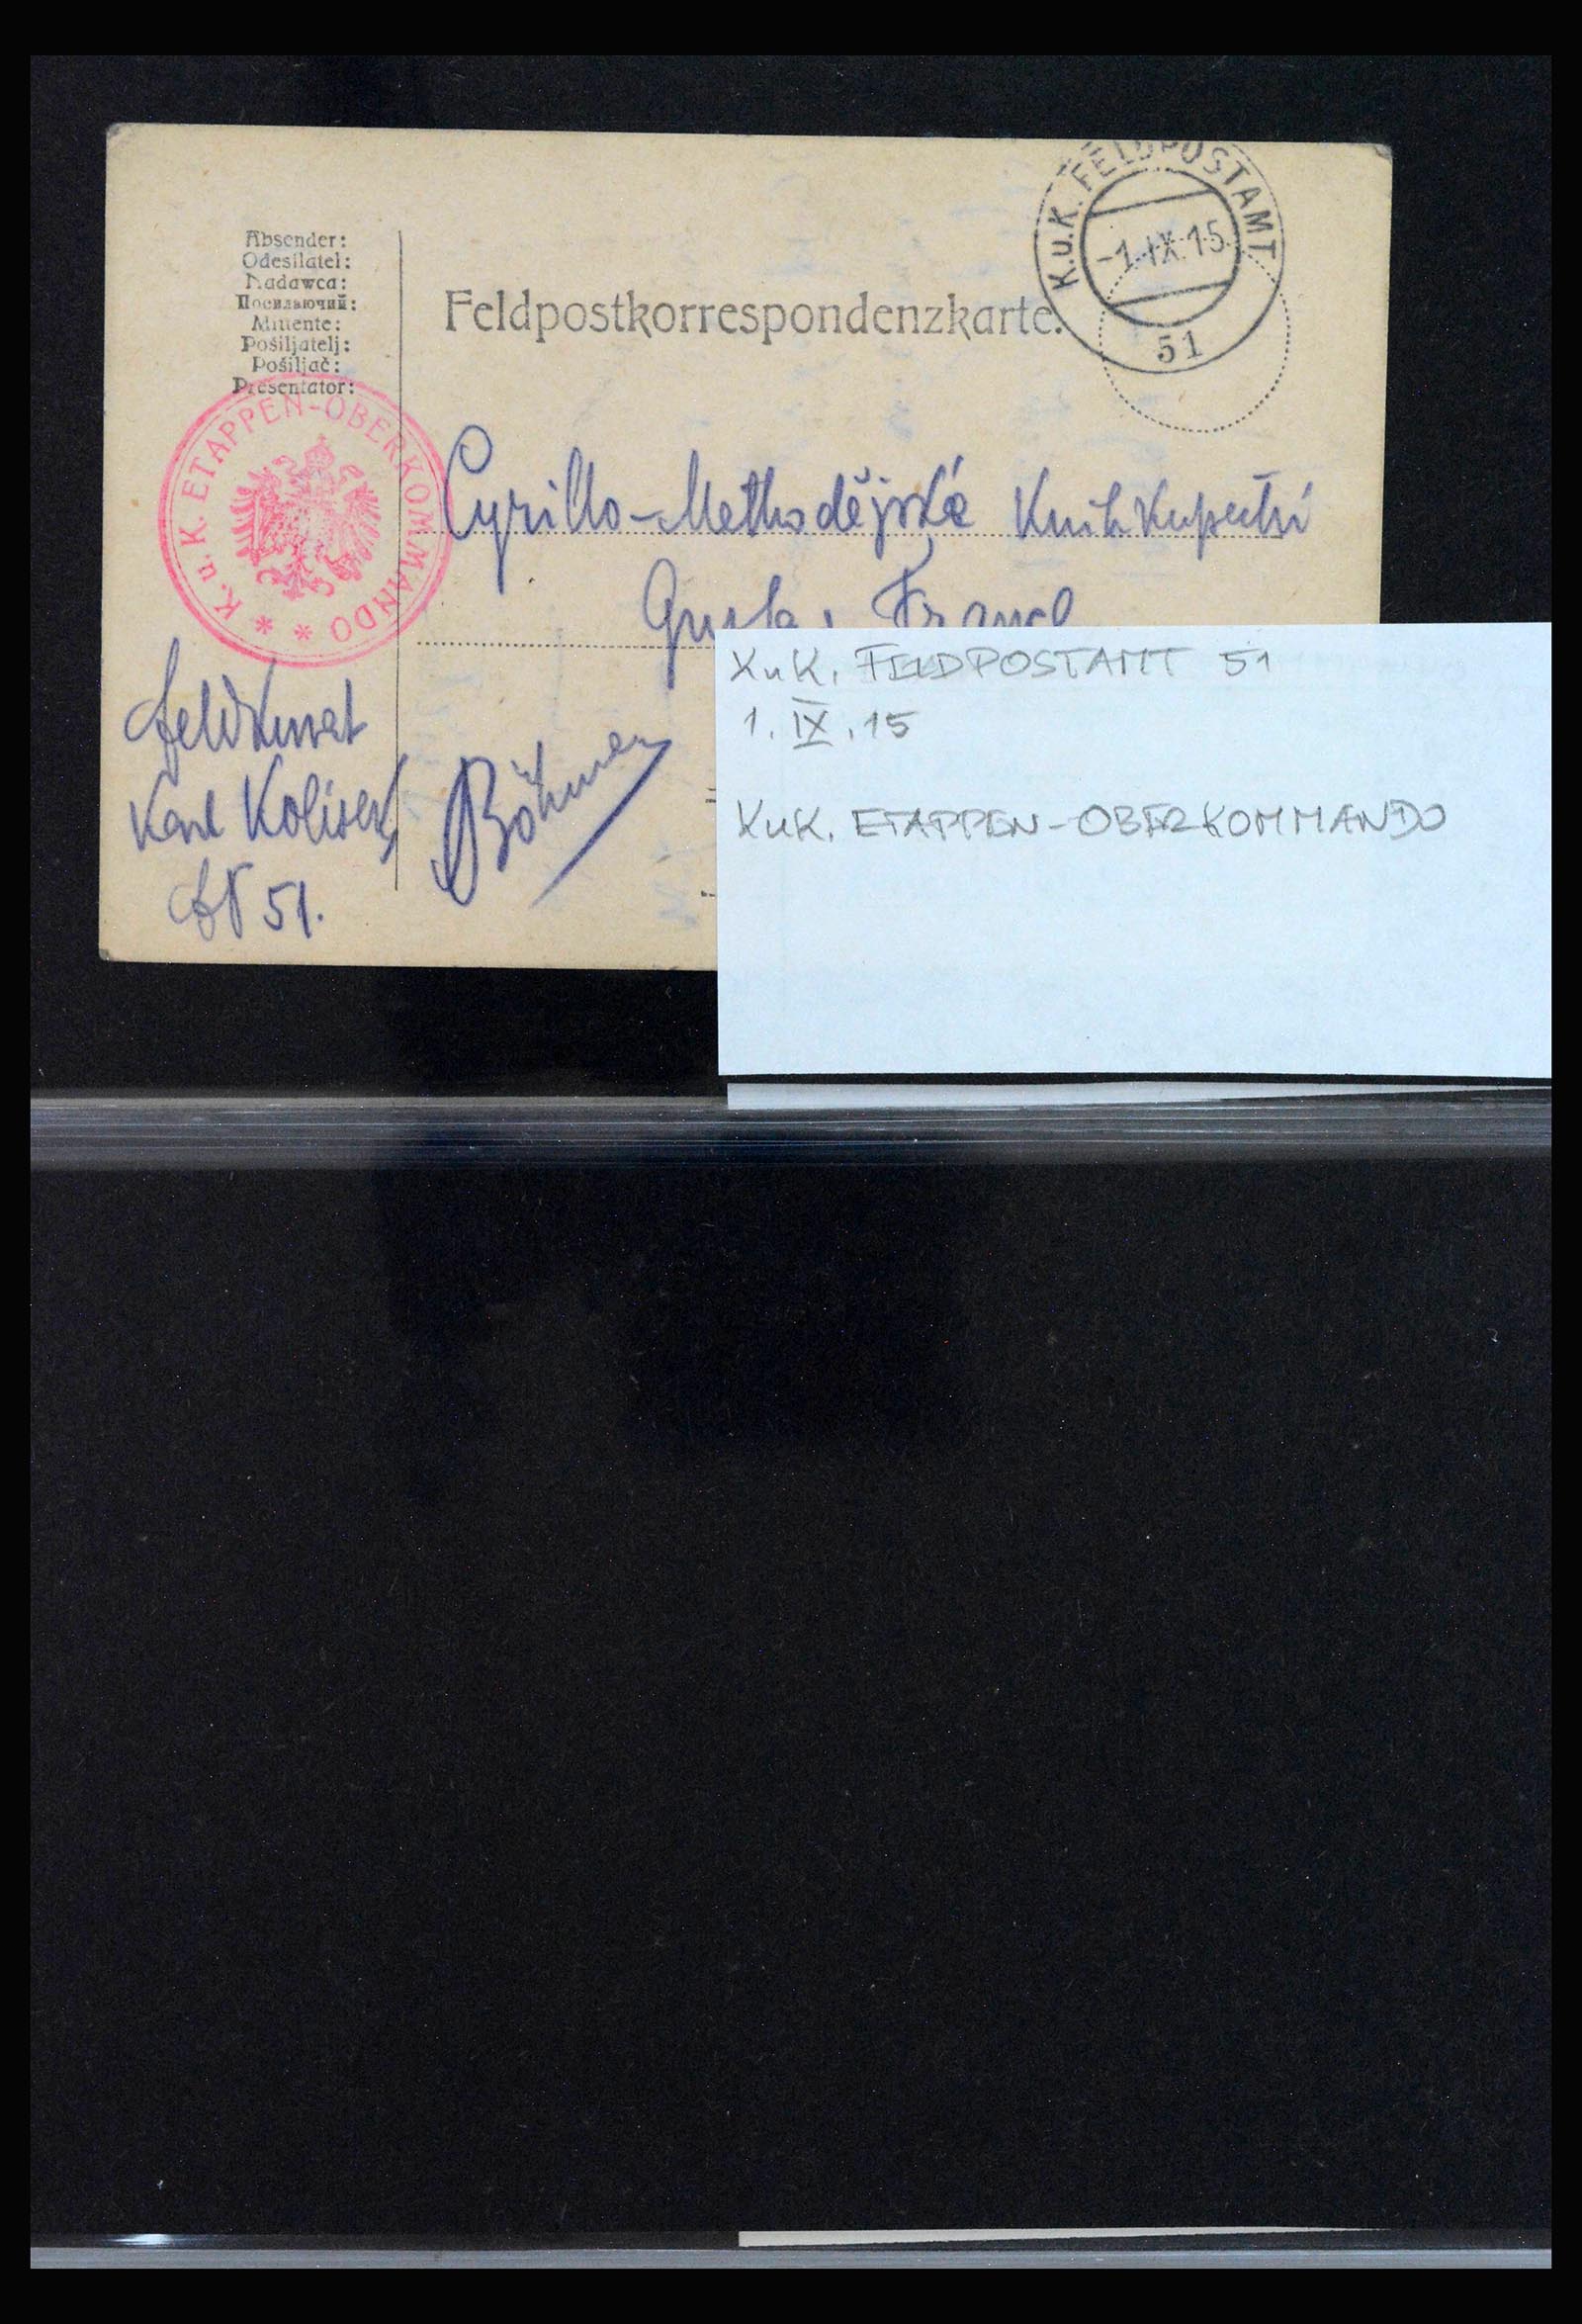 Absender:
Odesílatel:
Nadawca:
Посилаючий:
Mittente:
Pošiljatelj:
Pošiljač:
Presentator:
Feldpostkorrespondenzkarte.
K.u.K. FELDPOSTAMT
-1.IX.15
51
K.u.K. ETAPPEN-OBERKOMMANDO
Cyrillo-Methodějské Knihkupectví
Francl
Böhmen
Feldkurat
Karl Kolisek,
FP 51.
KuK. FELDPOSTAMT 51
1. IX. 15
KuK. ETAPPEN-OBERKOMMANDO